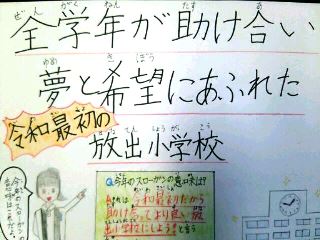 ぜんがくねん たす あ
全学年が助け合い
ゆめ きぼう
夢と希望にあふれた
令和最初の
はなてんしょうがっこう
放出小学校
今年のスローガンの意味は?
令和最初だから
助け合ってより良い放
出小学校にしようと言う
今年の
スローガンの
意味はこれだよ。